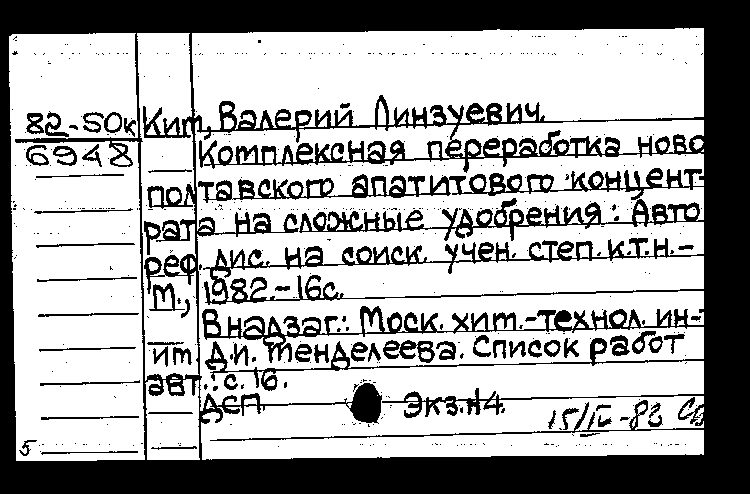 82-50к Ким, Валерий Линзуевич.
6948 Комплексная переработка ново
полтавского апатитового концент-
рата на сложные удобрения: Авто
реф. дис. на соиск. учен. степ. к.т.н.-
М., 1982.-16с.
В надзаг.: Моск. хим.-технол. ин-т
им. Д.И. Менделеева. Список работ
авт.: с. 16.
ДСП. Экз.N4.
15/IV-82
5